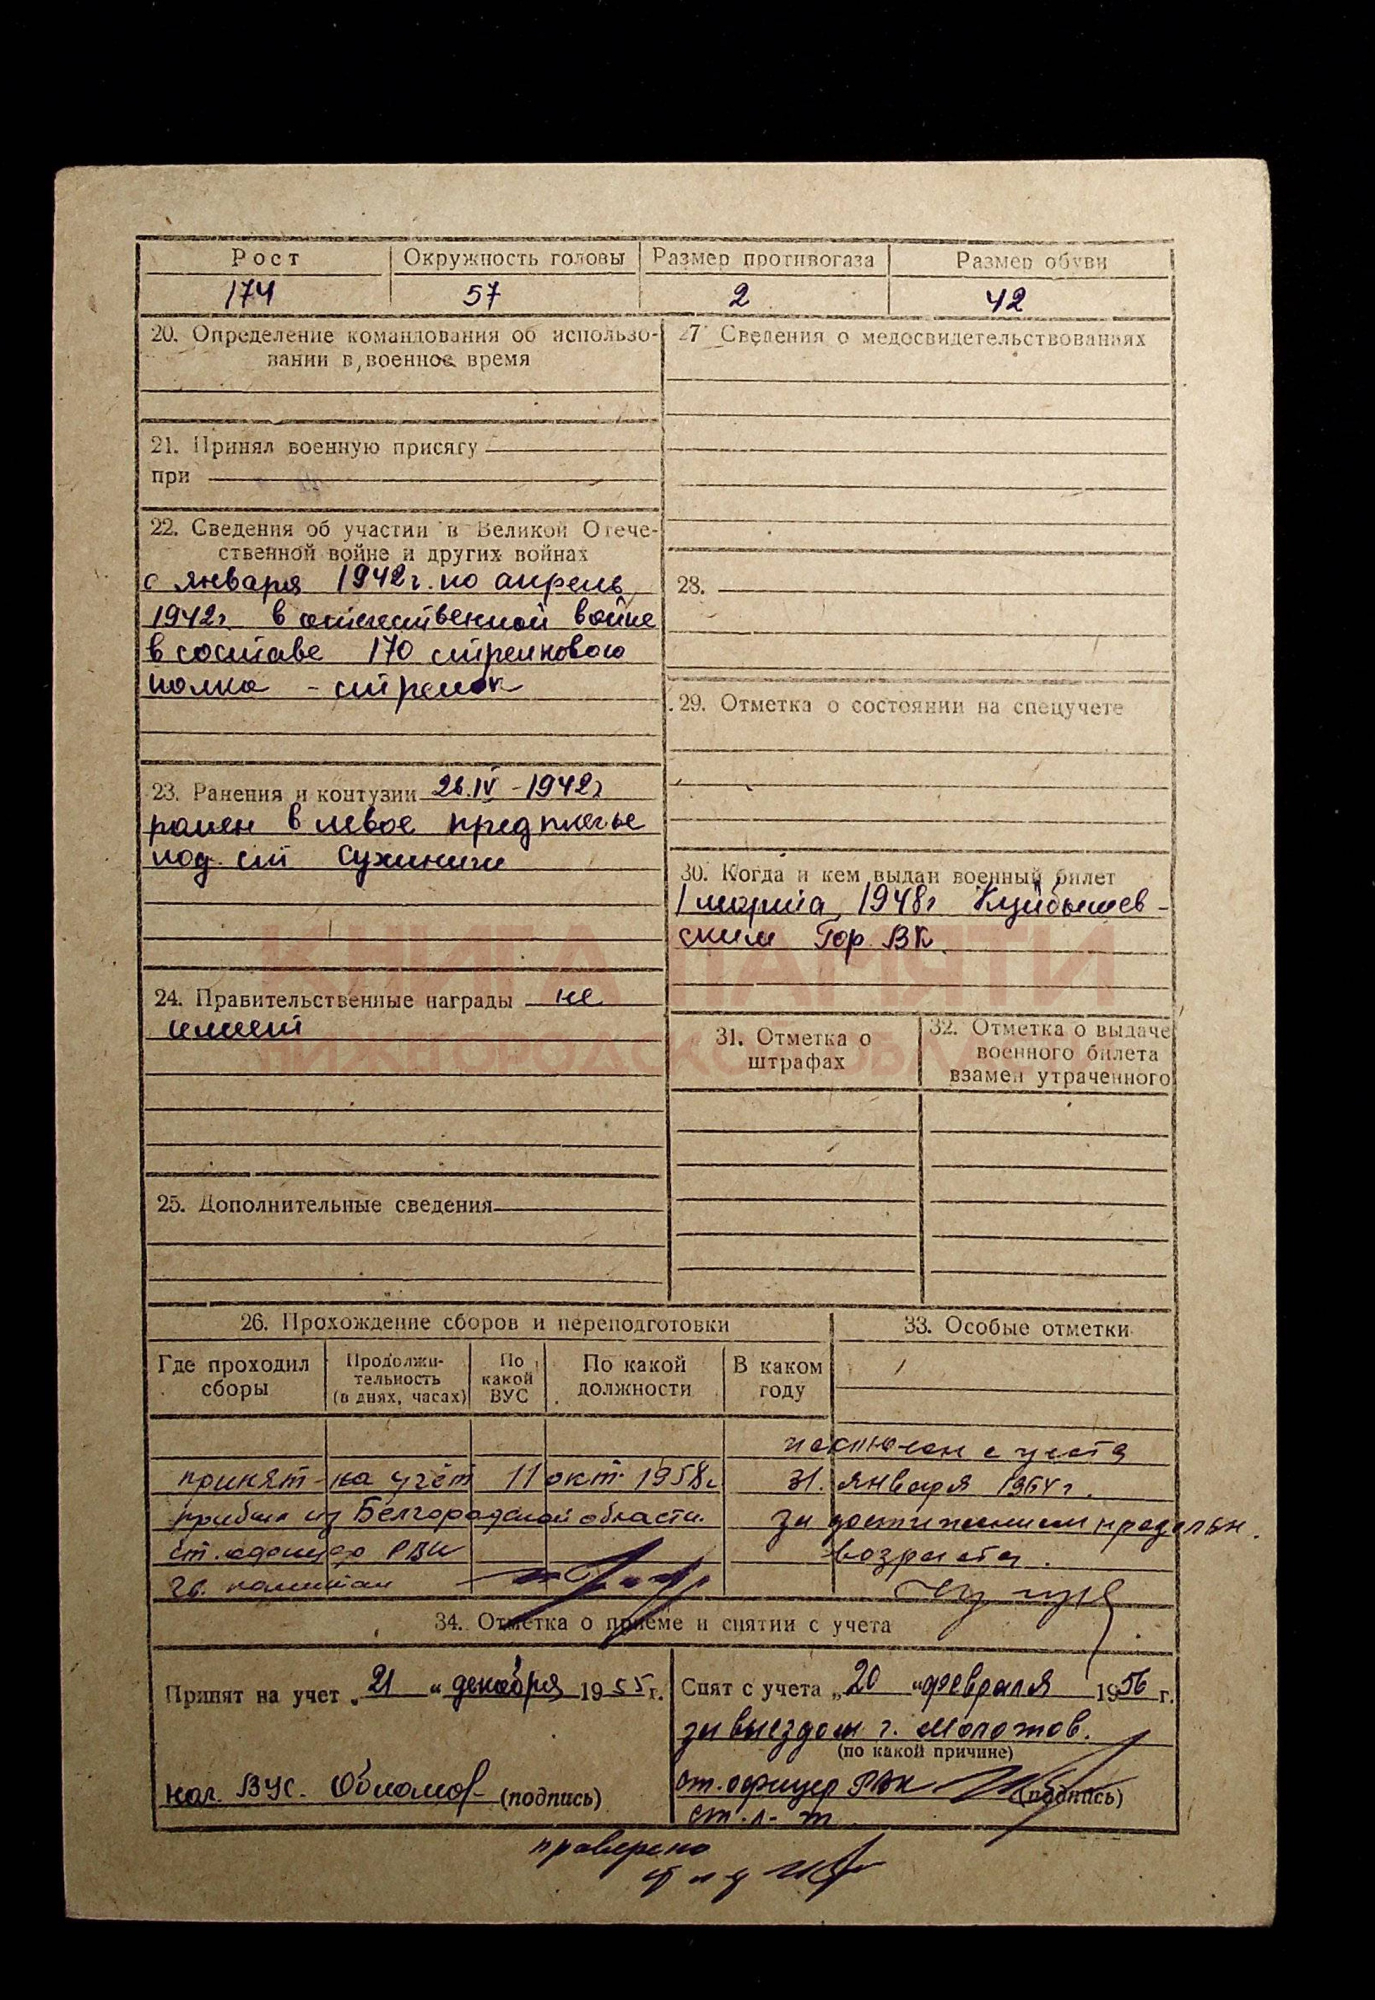 Рост Окружность головы Размер противогаза Размер обуви
174 57 2 42
20. Определение командования об использо-
вании в военное время
21. Принял военную присягу
при
22. Сведения об участии в Великой Отече-
ственной войне и других войнах
с января 1942 г. по апрель
1942 г. в отечественной войне
в составе 170 стрелкового
полка - стрелок
23. Ранения и контузии 26.IV - 1942 г
ранен в левое предплечье
под ст Сухиничи
24. Правительственные награды не
имеет
25. Дополнительные сведения
27 Сведения о медосвидетельствованиях
28.
29. Отметка о состоянии на спецучете
30. Когда и кем выдан военный билет
1 марта 1948 г Куйбышев-
ским Гор. ВК.
31. Отметка о
штрафах
32. Отметка о выдаче
военного билета
взамен утраченного
КНИГА ПАМЯТИ
НИЖЕГОРОДСКОЙ ОБЛАСТИ
26. Прохождение сборов и переподготовки
Где проходил
сборы
Продолжи-
тельность
(в днях, часах)
По
какой
ВУС
По какой
должности
В каком
году
принят на учёт 11 окт. 1958 г.
прибыл из Белгородской области.
ст. офицер РВК
гв. капитан
33. Особые отметки
исключен с учета
31. января 1964 г.
за достижением предельн.
возраста.
34. Отметка о приеме и снятии с учета
Принят на учет „21" декабря 1955 г.
нач. ВУС. Обломов (подпись)
Снят с учета „20" февраля 1956 г.
за выездом г. Молотов.
(по какой причине)
ст. офицер РВК (подпись)
ст. л-т
проверено